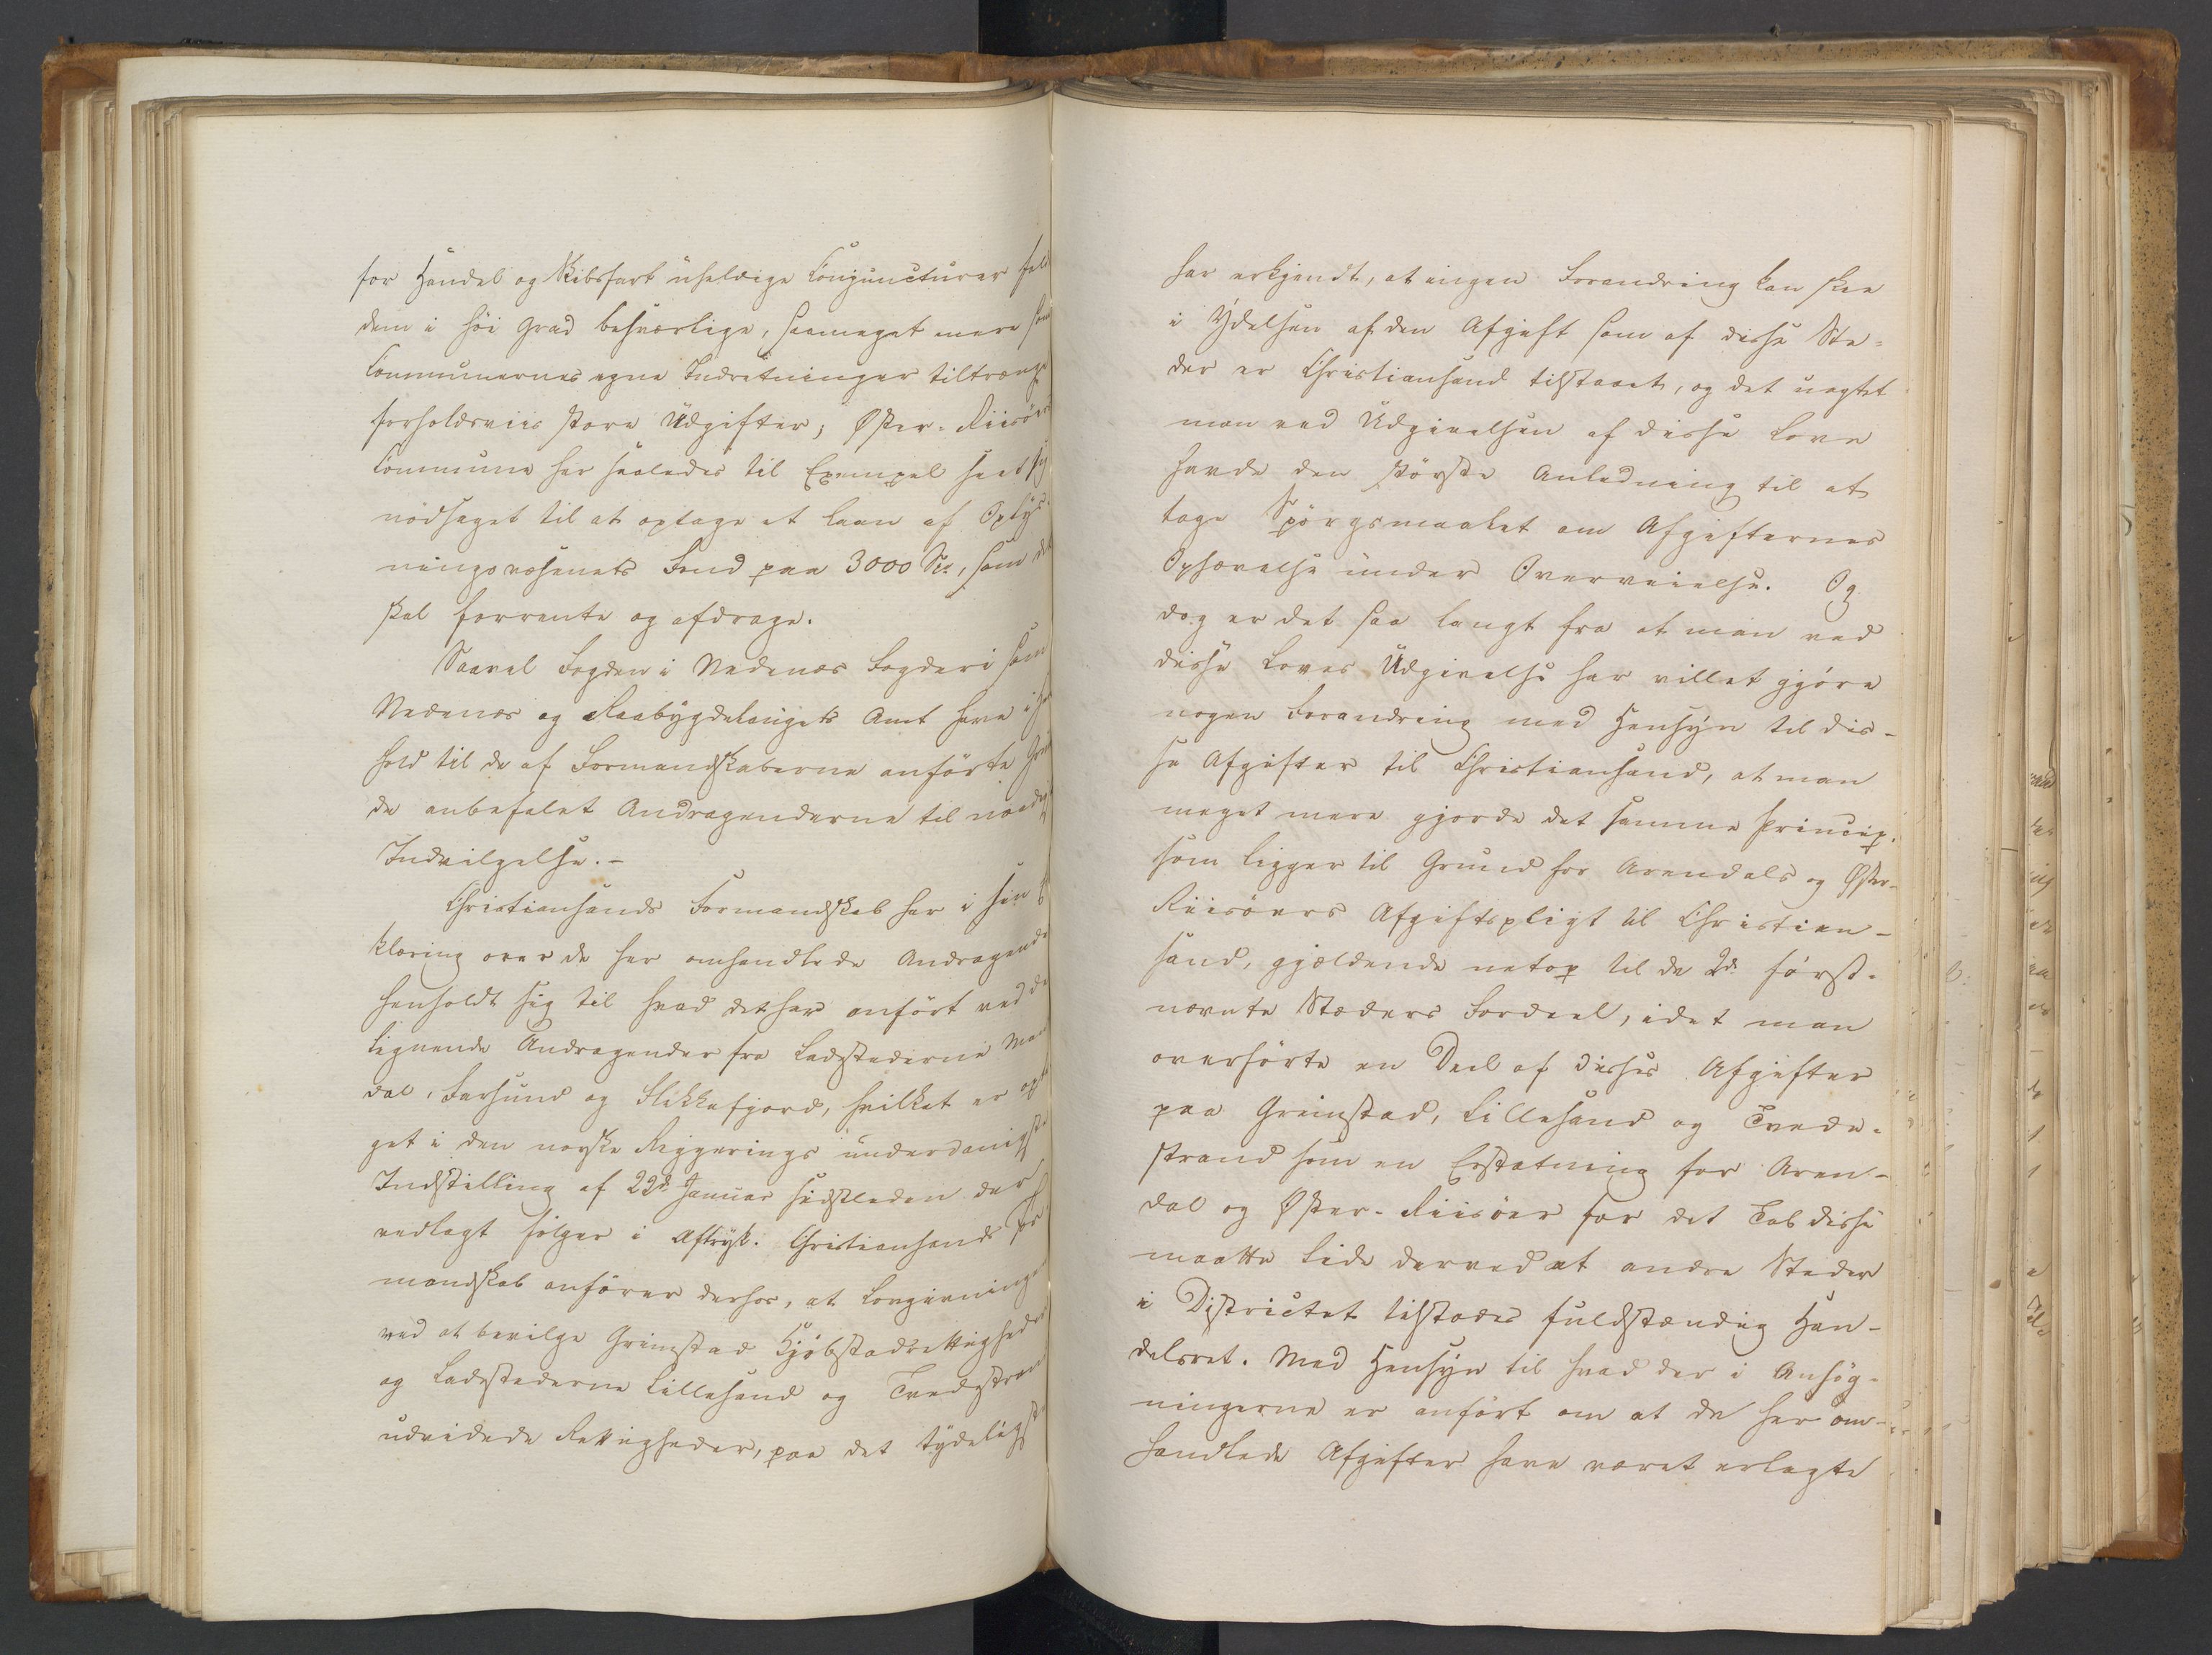 for Handel og Skibsfart uheldige Conjuncturer
dem i höi Grad besværlige, saameget mere som
Communernes egne Indretninger tiltrænge
forholdsviis store Udgifter; Øster-Riisöers
Commune har saaledes til Exempel seet sig
nödsaget til at optage et Laan af Oplys-
ningsvæsenets Fond paa 3000 Spd, som det
skal forrente og afdrage.
Saavel Fogden i Nedenæs Fogderi som
Nedenæs og Raabygdelaugets Amt have i Hen-
hold til de af Formandskaberne anförte Grun-
de anbefalet Andragenderne til naadigst
Indvilgelse.-
Christiansands Formandskab har i sin Er-
klæring over de her omhandlede Andragender
henholdt sig til hvad det har anfört ved de
lignende Andragender fra Ladestederne Man-
dal, Farsund og Flekkefjord, hvilket er opta-
get i den norske Regjerings underdanigste
Indstilling af 22de Januar sidstleden der
vedlagt fölger i Aftryk. Christiansands For-
mandskab anförer derhos, at Lovgivningen
ved at bevilge Grimstad Kjöbstadrettigheder
og Ladestederne Lillesand og Tvedestrand
udvidede Rettigheder, paa det tydeligste
har erkjendt, at ingen Forandring kan skee
i Ydelsen af den Afgift som af disse Ste-
der er Christiansand tilstaaet, og det uagtet
man ved Udgivelsen af disse Love
havde den störste Anledning til at
tage Spörgsmaalet om Afgifternes
Ophævelse under Overveielse. Og
dog er det saa langt fra at man ved
disse Loves Udgivelse har villet gjöre
nogen Forandring med Hensyn til dis-
se Afgifter til Christiansand, at man
meget mere gjorde det samme Princip,
som ligger til Grund for Arendals og Øster-
Riisöers Afgiftspligt til Christian-
sand, gjældende netop til de 2de först-
nævnte Stæders Fordeel, idet man
overförte en Deel af disses Afgifter
paa Grimstad, Lillesand og Tvede-
strand som en Erstatning for Aren-
dal og Øster-Riisöer for det Tab disse
maatte lide derved at andre Steder
i Districtet tilstodes fuldstændig Han-
delsret. Med Hensyn til hvad der i Ansög-
ningerne er anfört om at de her om-
handlede Afgifter have været erlagte